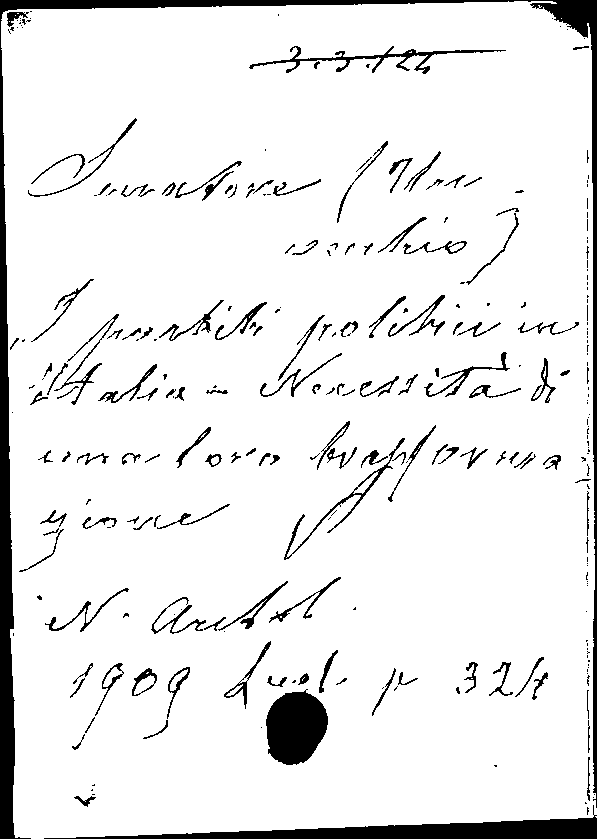 3.3.124
Senatore (Un
vecchio)
I partiti politici in
Italia - Necessità di
una loro trasforma-
zione
N. Antol.
1909 Lugl. p 324